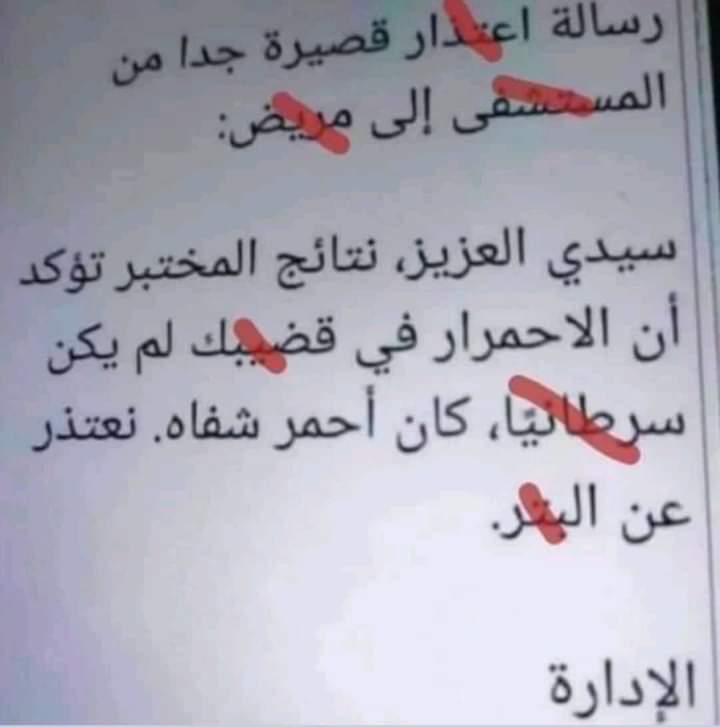 رسالة اعتذار قصيرة جدا من
المستشفى إلى مريض:
سيدي العزيز، نتائج المختبر تؤكد
أن الاحمرار في قضيبك لم يكن
سرطانيًا، كان أحمر شفاه. نعتذر
عن البتر.
الإدارة